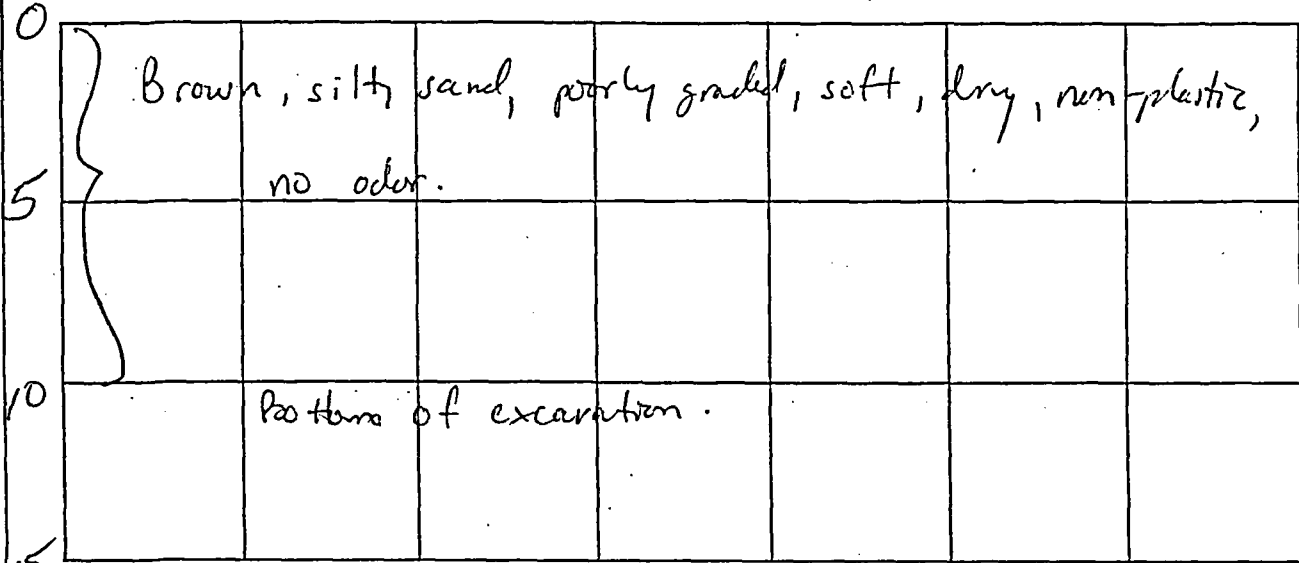 0
Brown, silty sand, poorly graded, soft, dry, non-plastic,
no odor.
5
10
Bottom of excavation.